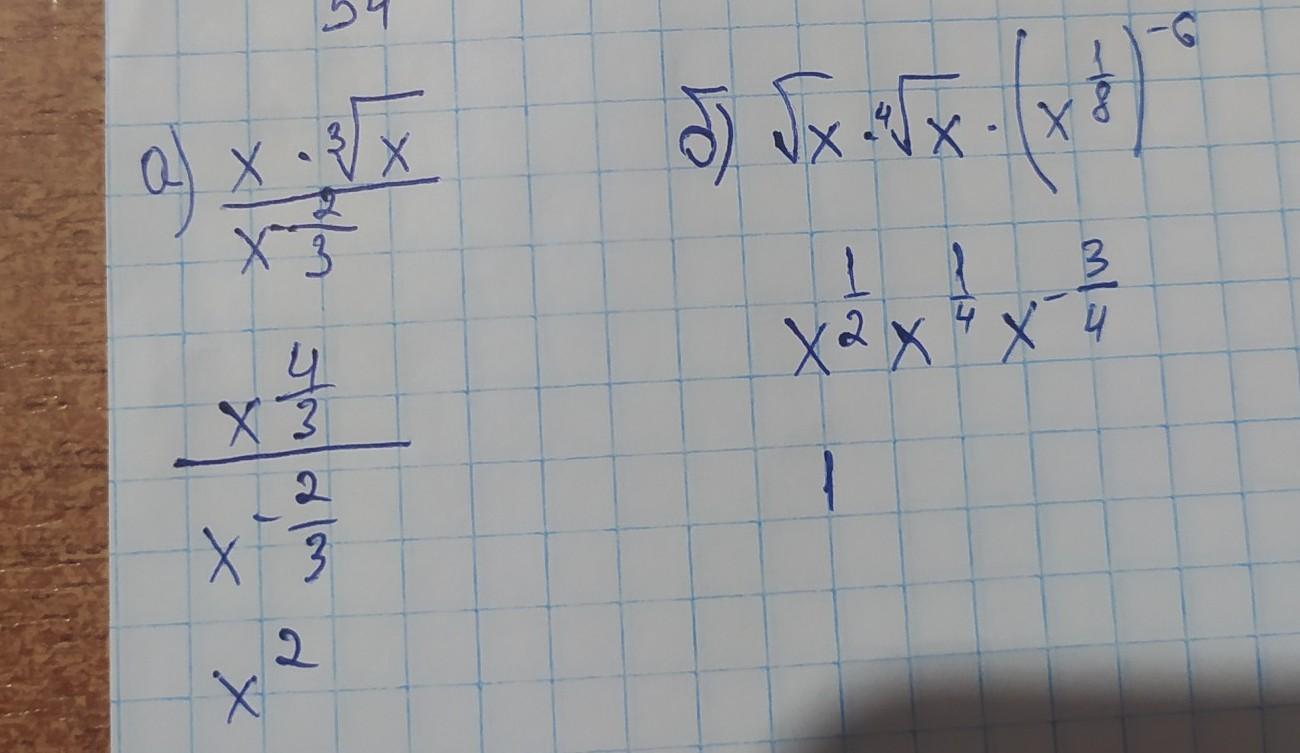 54
а) (x · ∛x) / x^(-2/3)
x^(4/3) / x^(-2/3)
x^2
б) √x · ∜x · (x^(1/8))^(-6)
x^(1/2) x^(1/4) x^(-3/4)
1